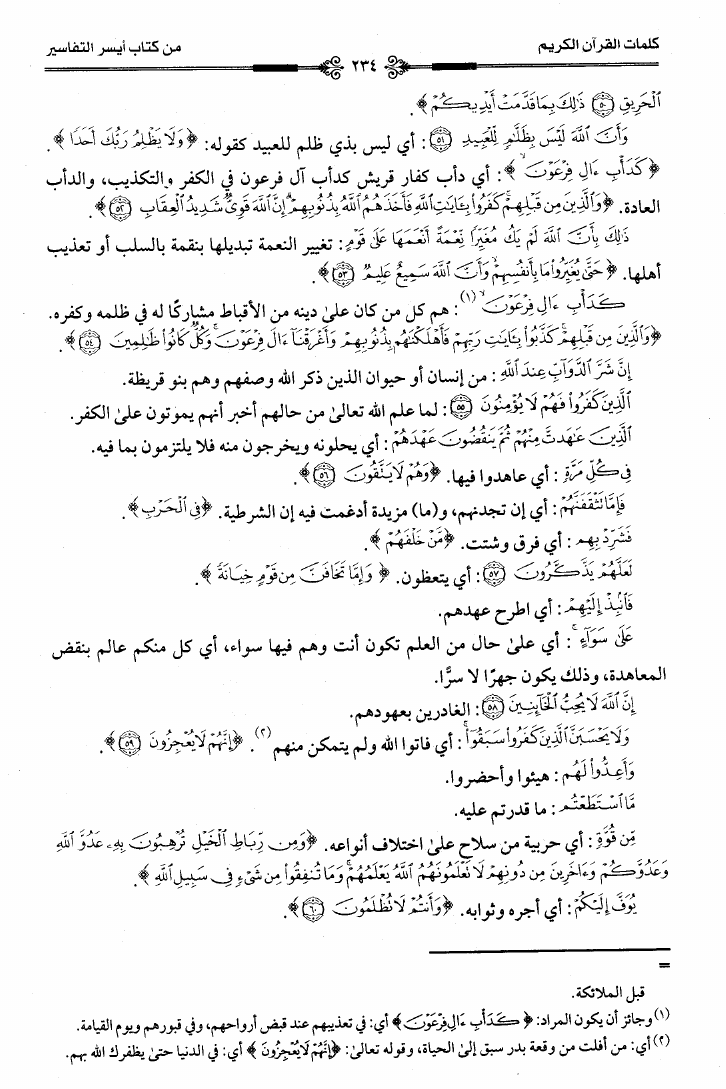 كلمات القرآن الكريم ٢٣٤ من كتاب أيسر التفاسير
ٱلْحَرِيقِ ۝٥٠ ذَٰلِكَ بِمَا قَدَّمَتْ أَيْدِيكُمْ ﴾.
وَأَنَّ ٱللَّهَ لَيْسَ بِظَلَّٰمٍ لِّلْعَبِيدِ ۝٥١: أي ليس بذي ظلم للعبيد كقوله: ﴿ وَلَا يَظْلِمُ رَبُّكَ أَحَدًا ﴾.
﴿ كَدَأْبِ ءَالِ فِرْعَوْنَ ﴾: أي دأب كفار قريش كدأب آل فرعون في الكفر والتكذيب، والدأب
العادة. ﴿وَٱلَّذِينَ مِن قَبْلِهِمْ ۚ كَفَرُوا۟ بِـَٔايَٰتِ ٱللَّهِ فَأَخَذَهُمُ ٱللَّهُ بِذُنُوبِهِمْ ۗ إِنَّ ٱللَّهَ قَوِىٌّ شَدِيدُ ٱلْعِقَابِ ۝٥٢﴾.
ذَٰلِكَ بِأَنَّ ٱللَّهَ لَمْ يَكُ مُغَيِّرًا نِّعْمَةً أَنْعَمَهَا عَلَىٰ قَوْمٍ: تغيير النعمة تبديلها بنقمة بالسلب أو تعذيب
أهلها. ﴿ حَتَّىٰ يُغَيِّرُوا۟ مَا بِأَنفُسِهِمْ ۙ وَأَنَّ ٱللَّهَ سَمِيعٌ عَلِيمٌ ۝٥٣﴾.
كَدَأْبِ ءَالِ فِرْعَوْنَ ۙ(١): هم كل من كان على دينه من الأقباط مشاركًا له في ظلمه وكفره.
﴿وَٱلَّذِينَ مِن قَبْلِهِمْ ۚ كَذَّبُوا۟ بِـَٔايَٰتِ رَبِّهِمْ فَأَهْلَكْنَٰهُم بِذُنُوبِهِمْ وَأَغْرَقْنَآ ءَالَ فِرْعَوْنَ ۚ وَكُلٌّ كَانُوا۟ ظَٰلِمِينَ ۝٥٤﴾.
إِنَّ شَرَّ ٱلدَّوَآبِّ عِندَ ٱللَّهِ: من إنسان أو حيوان الذين ذكر الله وصفهم وهم بنو قريظة.
ٱلَّذِينَ كَفَرُوا۟ فَهُمْ لَا يُؤْمِنُونَ ۝٥٥: لما علم الله تعالى من حالهم أخبر أنهم يموتون على الكفر.
ٱلَّذِينَ عَٰهَدتَّ مِنْهُمْ ثُمَّ يَنقُضُونَ عَهْدَهُمْ: أي يحلونه ويخرجون منه فلا يلتزمون بما فيه.
فِى كُلِّ مَرَّةٍ: أي عاهدوا فيها. ﴿وَهُمْ لَا يَتَّقُونَ ۝٥٦﴾.
فَإِمَّا تَثْقَفَنَّهُمْ: أي إن تجدنهم، و(ما) مزيدة أدغمت فيه إن الشرطية. ﴿فِى ٱلْحَرْبِ﴾.
فَشَرِّدْ بِهِم: أي فرق وشتت. ﴿مَّنْ خَلْفَهُمْ ﴾.
لَعَلَّهُمْ يَذَّكَّرُونَ ۝٥٧: أي يتعظون. ﴿ وَإِمَّا تَخَافَنَّ مِن قَوْمٍ خِيَانَةً ﴾.
فَٱنۢبِذْ إِلَيْهِمْ: أي اطرح عهدهم.
عَلَىٰ سَوَآءٍ ۚ: أي على حال من العلم تكون أنت وهم فيها سواء، أي كل منكم عالم بنقض
المعاهدة، وذلك يكون جهرًا لا سرًّا.
إِنَّ ٱللَّهَ لَا يُحِبُّ ٱلْخَآئِنِينَ ۝٥٨: الغادرين بعهودهم.
وَلَا يَحْسَبَنَّ ٱلَّذِينَ كَفَرُوا۟ سَبَقُوٓا۟ ۚ: أي فاتوا الله ولم يتمكن منهم(٢). ﴿إِنَّهُمْ لَا يُعْجِزُونَ ۝٥٩﴾.
وَأَعِدُّوا۟ لَهُم: هيئوا وأحضروا.
مَّا ٱسْتَطَعْتُم: ما قدرتم عليه.
مِّن قُوَّةٍ: أي حربية من سلاح على اختلاف أنواعه. ﴿وَمِن رِّبَاطِ ٱلْخَيْلِ تُرْهِبُونَ بِهِۦ عَدُوَّ ٱللَّهِ
وَعَدُوَّكُمْ وَءَاخَرِينَ مِن دُونِهِمْ لَا تَعْلَمُونَهُمُ ٱللَّهُ يَعْلَمُهُمْ ۚ وَمَا تُنفِقُوا۟ مِن شَىْءٍ فِى سَبِيلِ ٱللَّهِ ﴾.
يُوَفَّ إِلَيْكُمْ: أي أجره وثوابه. ﴿وَأَنتُمْ لَا تُظْلَمُونَ ۝٦٠﴾.
=
قبل الملائكة.
(١) وجائز أن يكون المراد: ﴿ كَدَأْبِ ءَالِ فِرْعَوْنَ ﴾ أي: في تعذيبهم عند قبض أرواحهم، وفي قبورهم ويوم القيامة.
(٢) أي: من أفلت من وقعة بدر سبق إلى الحياة، وقوله تعالى: ﴿إِنَّهُمْ لَا يُعْجِزُونَ ﴾ أي: في الدنيا حتى يظفرك الله بهم.